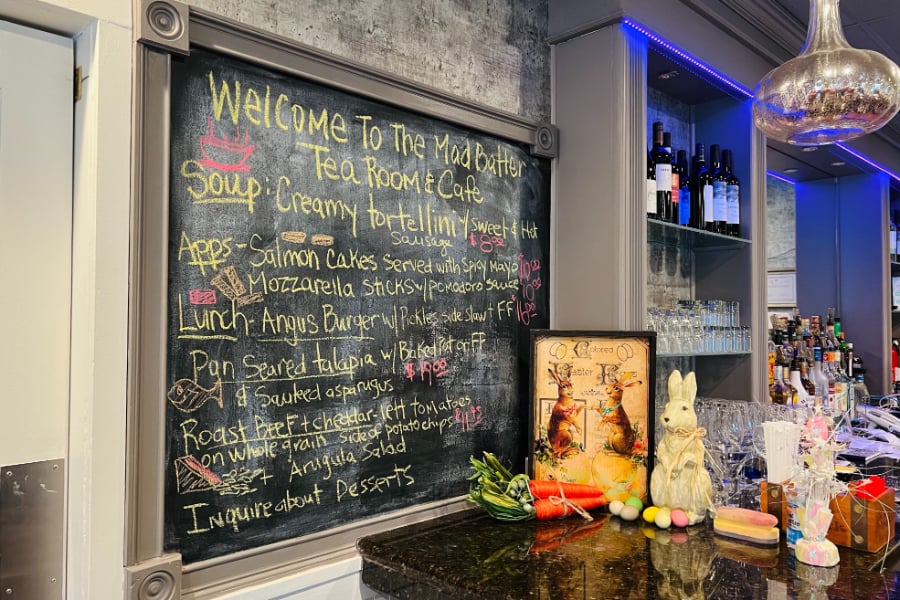 Welcome To The Mad Batter
Tea Room & Cafe
Soup: Creamy tortellini w/ sweet & Hot
Sausage $8.00
Apps- Salmon Cakes served with Spicy Mayo
Mozzarella Sticks w/ pomodoro sauce
Lunch- Angus Burger w/ Pickles side slaw + FF
Pan Seared talapia w/ Baked Pot or FF
& Sauteed asparagus $19.00
Roast Beef + cheddar- lett tomatoes
on whole grain side of potato chips
+ Arugula Salad
Inquire about Desserts
Colored